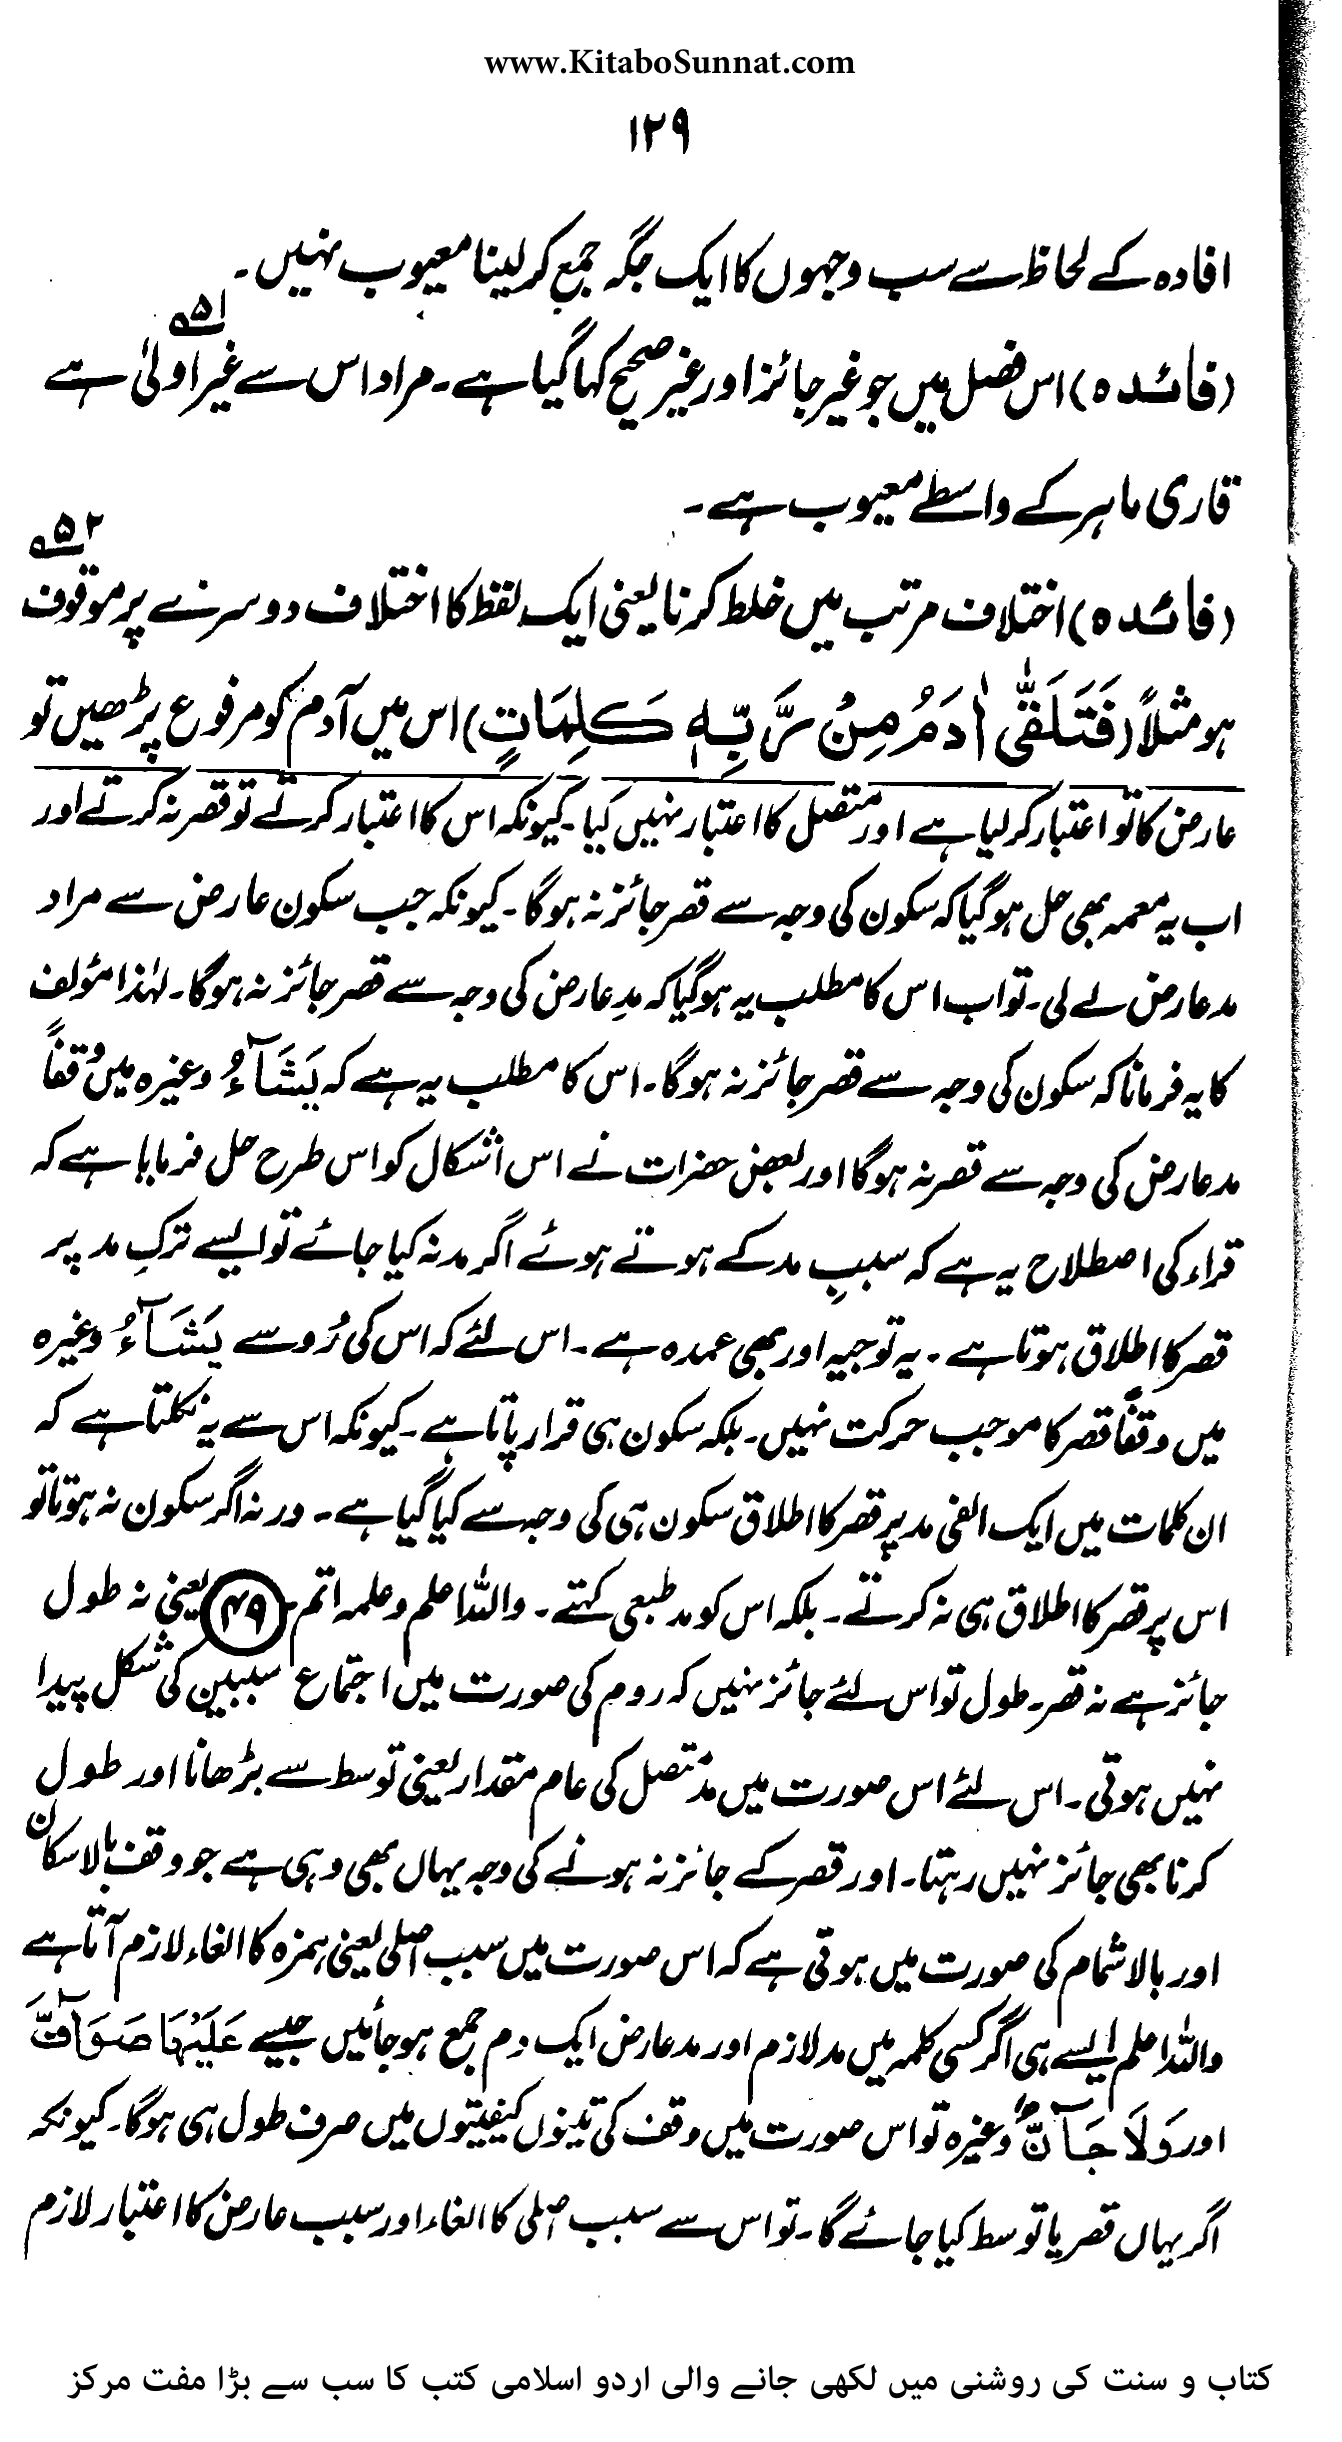 www.KitaboSunnat.com
۱۲۹
افادہ کے لحاظ سے سب وجہوں کا ایک جگہ جمع کر لینا معیوب نہیں۔
۵۱
(فائدہ) اس فصل میں جو غیر جائز اور غیر صحیح کہا گیا ہے۔ مراد اس سے غیر اولیٰ ہے
قاری ماہر کے واسطے معیوب ہے۔
۵۲
(فائدہ) اختلاف مرتب میں خلط کرنا یعنی ایک لفظ کا اختلاف دوسرے پر موقوف
ہو مثلاً (فَتَلَقّٰۤى اٰدَمُ مِنْ رَّبِّهٖ كَلِمَاتٍ) اس میں آدم کو مرفوع پڑھیں تو
عارض کا تو اعتبار کر لیا ہے اور متصل کا اعتبار نہیں کیا۔ کیونکہ اس کا اعتبار کرتے تو قصر نہ کرتے اور
اب یہ معمہ بھی حل ہو گیا کہ سکون کی وجہ سے قصر جائز نہ ہوگا۔ کیونکہ جب سکون عارض سے مراد
مد عارض لے لی۔ تو اب اس کا مطلب یہ ہو گیا کہ مدِ عارض کی وجہ سے قصر جائز نہ ہوگا۔ لہٰذا مؤلف
کا یہ فرمانا کہ سکون کی وجہ سے قصر جائز نہ ہوگا۔ اس کا مطلب یہ ہے کہ يَشَآءُ وغیرہ میں وقفاً
مد عارض کی وجہ سے قصر نہ ہوگا اور بعض حضرات نے اس اشکال کو اس طرح حل فرمایا ہے کہ
قراء کی اصطلاح یہ ہے کہ سببِ مد کے ہوتے ہوئے اگر مد نہ کیا جائے تو ایسے ترکِ مد پر
قصر کا اطلاق ہوتا ہے۔ یہ توجیہ اور بھی عمدہ ہے۔ اس لئے کہ اس کی رُو سے يَشَآءُ وغیرہ
میں وقفاً قصر کا موجب حرکت نہیں۔ بلکہ سکون ہی قرار پاتا ہے۔ کیونکہ اس سے یہ نکلتا ہے کہ
ان کلمات میں ایک الفی مد پر قصر کا اطلاق سکون ہی کی وجہ سے کیا گیا ہے۔ ورنہ اگر سکون نہ ہوتا تو
اس پر قصر کا اطلاق ہی نہ کرتے۔ بلکہ اس کو مد طبعی کہتے۔ واللہ اعلم وعلمہ اتم۔ ۴۹ یعنی نہ طول
جائز ہے نہ قصر۔ طول تو اس لئے جائز نہیں کہ روم کی صورت میں اجتماع سببین کی شکل پیدا
نہیں ہوتی۔ اس لئے اس صورت میں مد متصل کی عام مقدار یعنی توسط سے بڑھانا اور طول
کرنا بھی جائز نہیں رہتا۔ اور قصر کے جائز نہ ہونے کی وجہ یہاں بھی وہی ہے جو وقف بالاسکان
اور بالاشمام کی صورت میں ہوتی ہے کہ اس صورت میں سبب اصلی یعنی ہمزہ کا الغاء لازم آتا ہے
واللہ اعلم ایسے ہی اگر کسی کلمہ میں مد لازم اور مد عارض ایک دم جمع ہو جائیں جیسے عَلَيْهَا صَوَآفَّ
اور وَلَا جَآنٌّ وغیرہ تو اس صورت میں وقف کی تینوں کیفیتوں میں صرف طول ہی ہوگا۔ کیونکہ
اگر یہاں قصر یا توسط کیا جائے گا۔ تو اس سے سبب اصلی کا الغاء اور سبب عارض کا اعتبار لازم
کتاب و سنت کی روشنی میں لکھی جانے والی اردو اسلامی کتب کا سب سے بڑا مفت مرکز